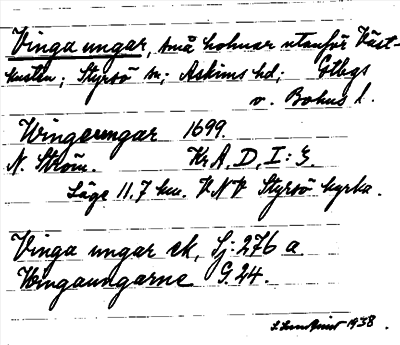 Vinga ungar, små holmar utanför Väst-
kusten; Styrsö sn; Askims hd; Gtbgs
o. Bohus l.
Wingeungar 1699.
N. Ström. Kr.A, D, I: 3.
Läge 11,7 km. V.N.V. Styrsö kyrka.
Vinga ungar ek, Sj: 276 a
Wingaungarne G. 24.
1938.